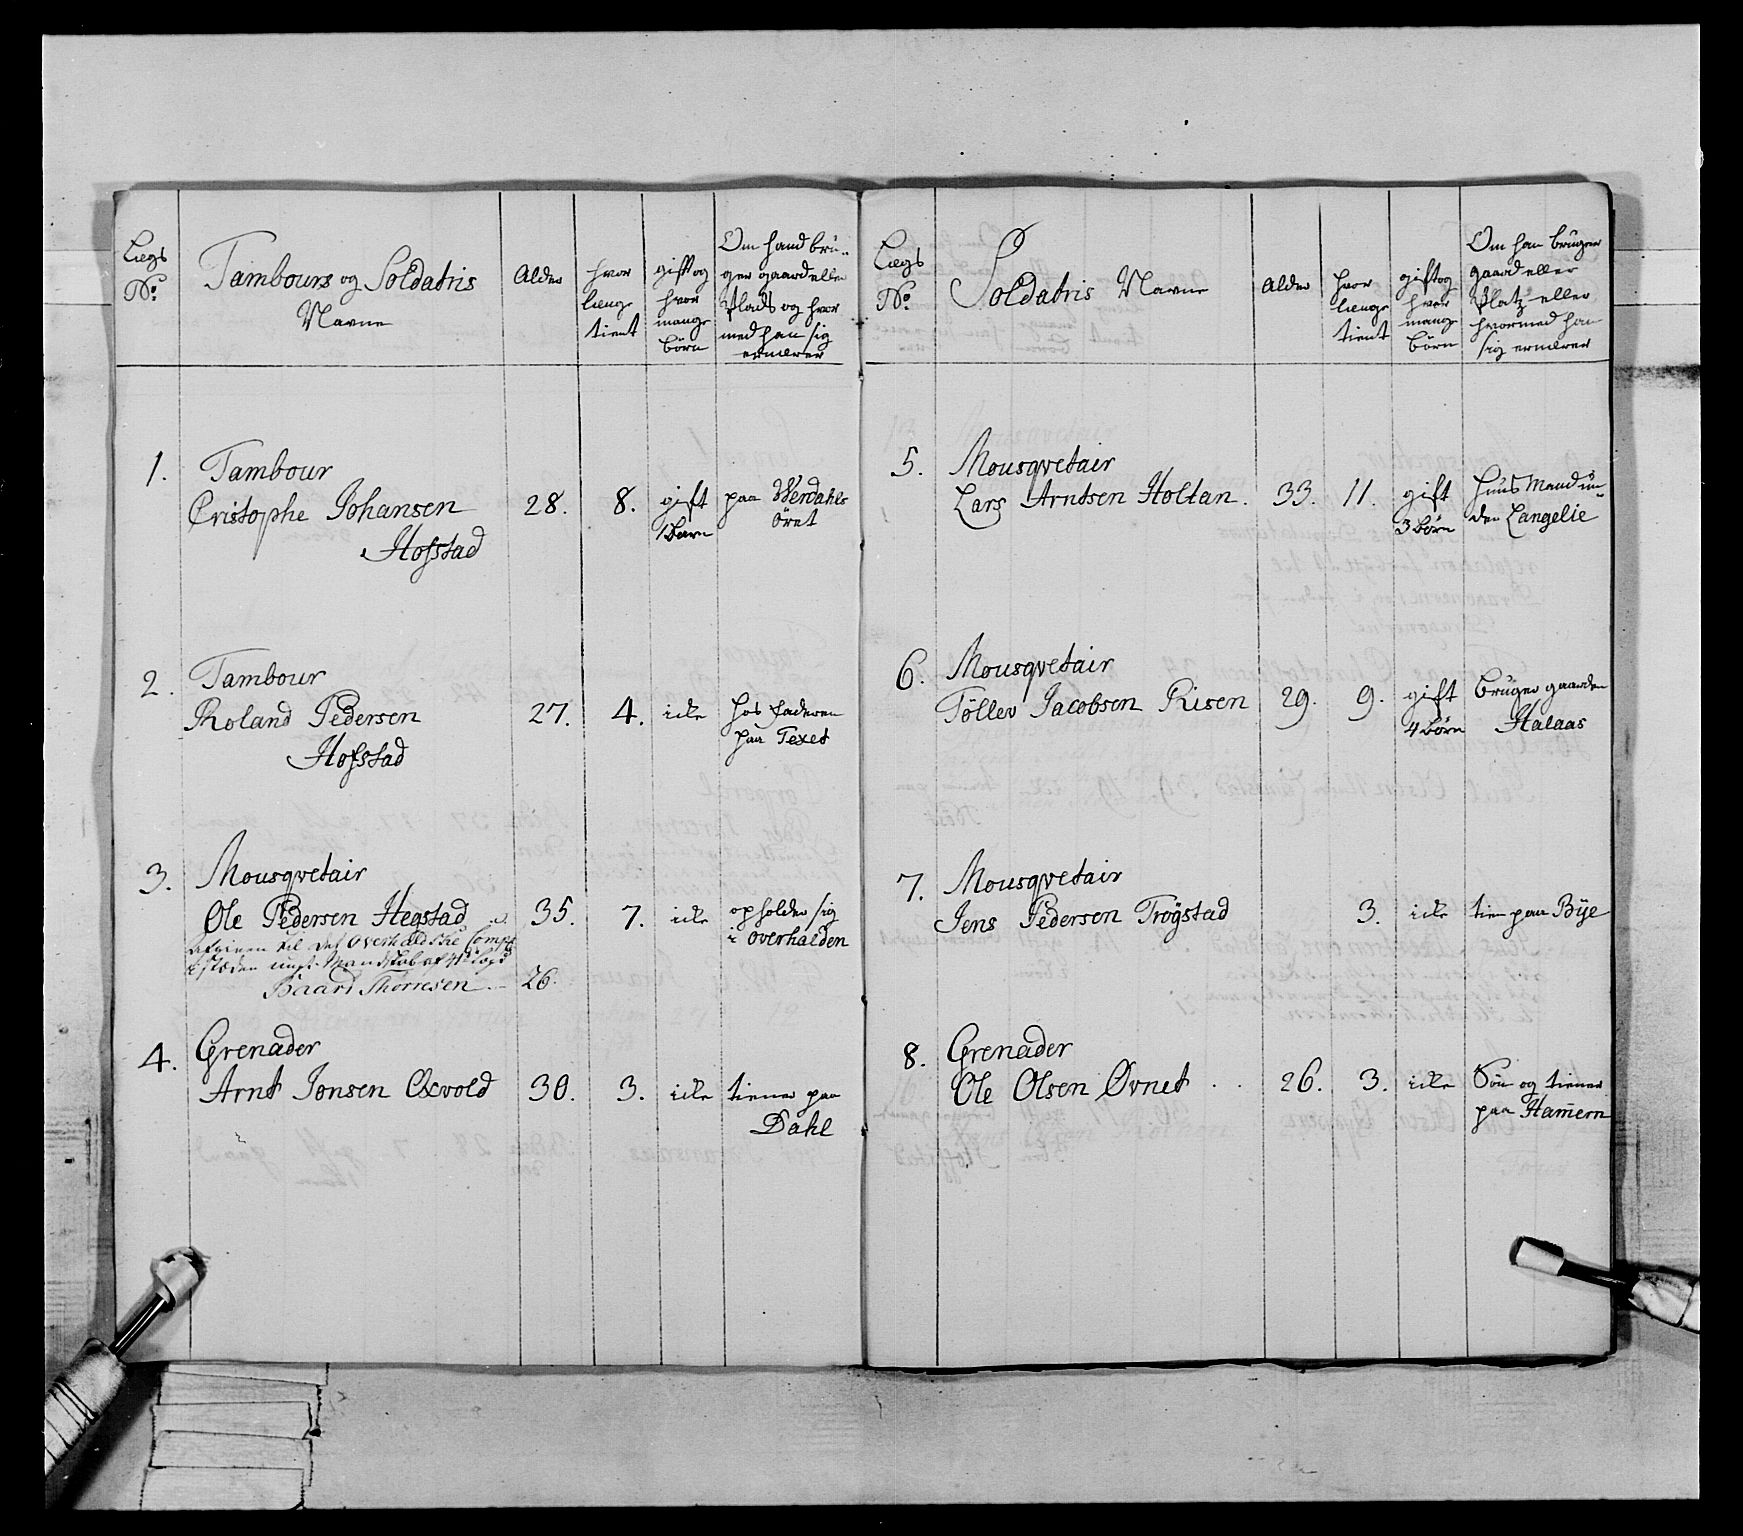 Lægs
No
Tambours og Soldatris
Navne
Alder
hvor
længe
tient
gift og
hvor
mange
börn
Om hand brü-
ger gaard eller
Plads og hvor
med han sig
ernærer
1. Tambour
Cristophe Johansen
Hofstad
28. 8. gift
1 barn
paa Werdahls
öret
2. Tambour
Roland Pedersen
Hofstad
27. 4. icke
hos faderen
paa Texet
3. Mousqvetair
Ole Pedersen Hegstad
35. 7. icke
opholder sig
i overhalden
afgiven til det Overhaldske Comp
i stæden ungt Mandskab af 41
Baard Thorresen 26.
4. Grenader
Arnt Jonsen Oxvold
30. 3. icke
tiener paa
Dahl
Lægs
No
Soldatris Navne
Alder
hvor
længe
tient
gift og
hvor
mange
börn
Om han brüger
gaard eller
Platz eller
hvormed han
sig ernærer
5. Mousqvetair
Lars Arntsen Holtan.
33. 11. gift
3 börn
Huus Mand un-
der Langelie
6. Mousqvetair
Töllev Jacobsen Risen
29. 9. gift
4 börn
brüger gaarden
Halaas
7. Mousqvetair
Jens Pedersen Tröÿstad
3. icke
tien paa Bÿe
8. Grenader
Ole Olsen Øvnet
26. 3. icke
Sön og tiener
paa Hamern